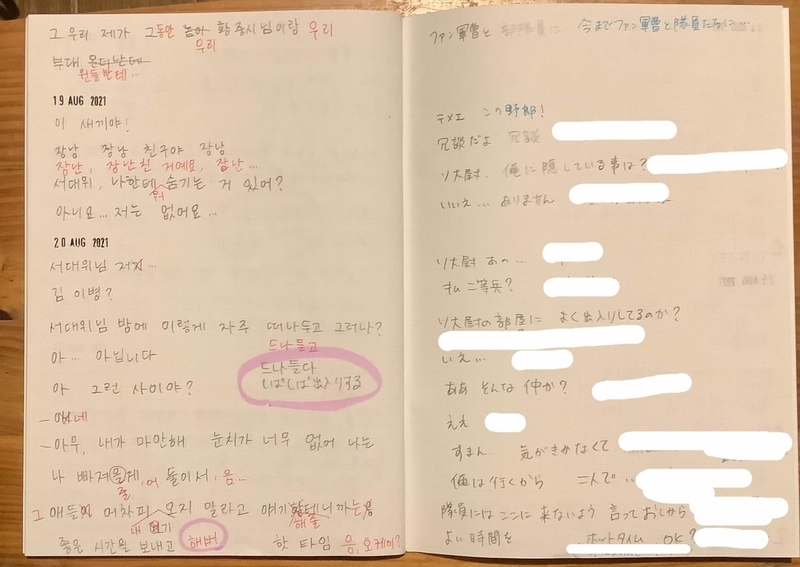 그 우리 제가 그동안 놈아 황중사님이랑 우리
우리
부대 온다난테
원들한테...
19 AUG 2021
이 새끼야!
장낭 장낭 친구야 장낭
장난, 장난친 거예요, 장난...
서대위, 나한테 숨기는 거 있어?
뭐
아니요... 저는 없어요..
20 AUG 2021
서대위님 저기...
김 이병?
서대위님 밤에 이렇게 자주 떠나두고 그러나?
드나들고
아... 아닙니다
드나들다
しばしば出入りする
아 그런 사이야?
네
아우, 내가 마안해 눈치가 너무 없어 나는
나 빠져 게, 둘이서, 음...
줄 어
그 애들 어차피 온지 말라고 얘기 니까는
내 여기 해둘
좋은 시간을 보내고 해번 핫 타임 응, 오케이?
ファン軍曹と 部隊員に 今までファン軍曹と隊員たちに...
テメエ この野郎!
冗談だよ 冗談
ソ大尉. 俺に隠している事は?
いいえ... ありません
ソ大尉 あの...
キム二等兵?
ソ大尉の部屋に よく出入りしてるのか?
いえ...
ああ そんな仲か?
ええ
すまん 気がきかなくて
俺は行くから 二人で...
隊員にはここに来ないよう 言っておくから
よい時間を ホットタイム OK?